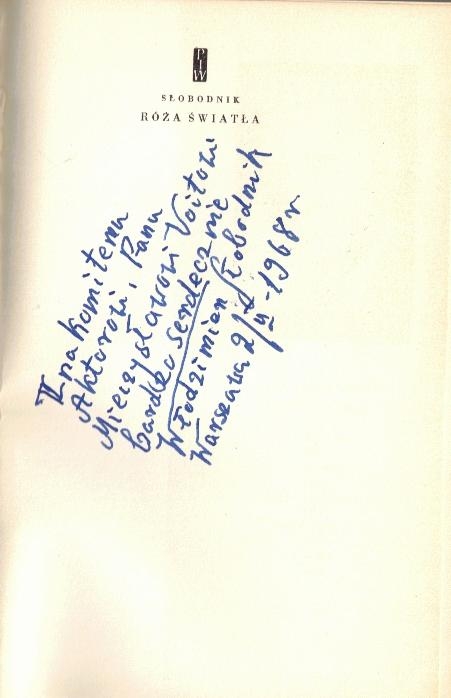 PIW
SŁOBODNIK
RÓŻA ŚWIATŁA
Znakomitemu
Aktorowi, Panu
Mieczysławowi Voitowi
bardzo serdecznie
Włodzimierz Słobodnik
Warszawa 2/V-1968 r